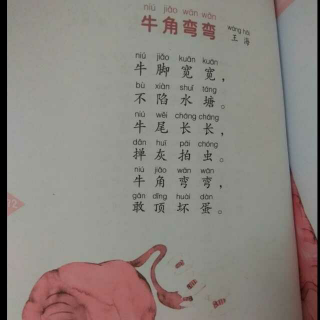 niú jiǎo wān wān
牛角弯弯
wáng hǎi
王海
niú jiǎo kuān kuān
牛脚宽宽，
bù xiàn shuǐ táng
不陷水塘。
niú wěi cháng cháng
牛尾长长，
dǎn huī pāi chóng
掸灰拍虫。
niú jiǎo wān wān
牛角弯弯，
gǎn dǐng huài dàn
敢顶坏蛋。